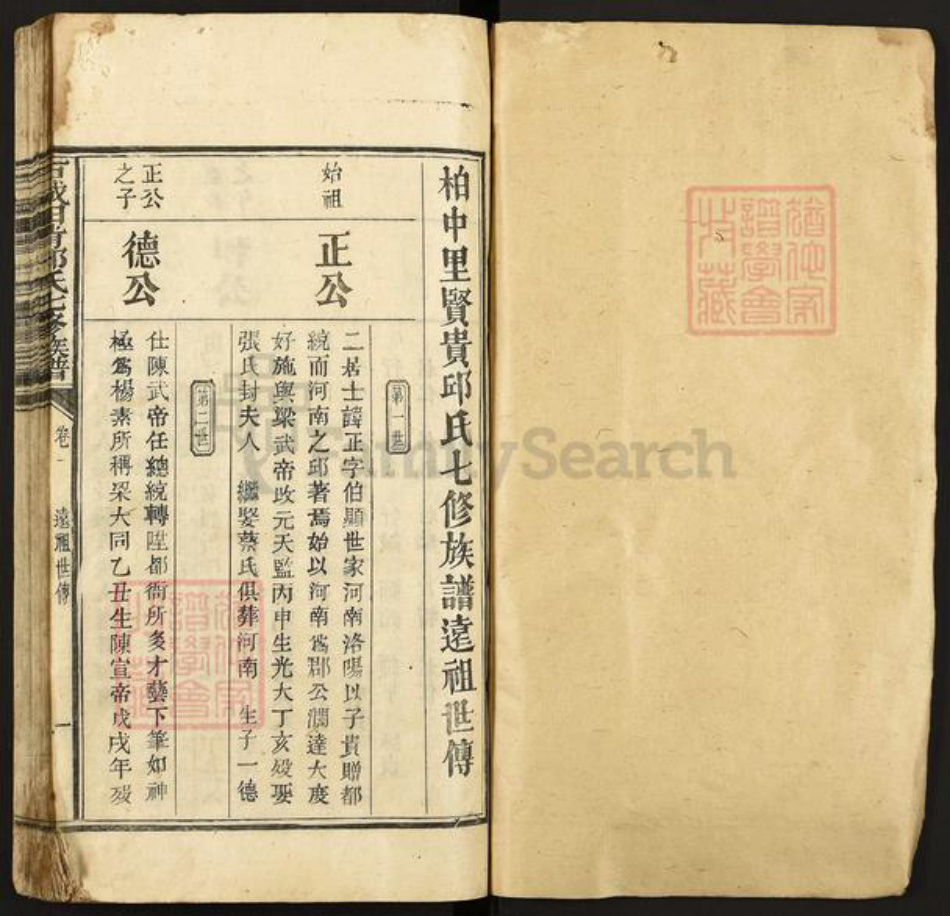 柏中里賢貴邱氏七修族譜遠祖世傳
第一世
始祖
正公
二居士諱正字伯顯世家河南洛陽以子貴贈都
統而河南之邱著焉始以河南爲郡公濶達大度
好施與梁武帝改元天監丙申生光大丁亥歿娶
張氏封夫人 繼娶蔡氏俱葬河南 生子一德
第二世
正公
之子
德公
仕陳武帝任總統轉陞都衙所多才藝下筆如神
極爲楊素所稱梁大同乙丑生陳宣帝戊戌年歿
邱氏七修族譜
卷一
遠祖世傳
一
FamilySearch